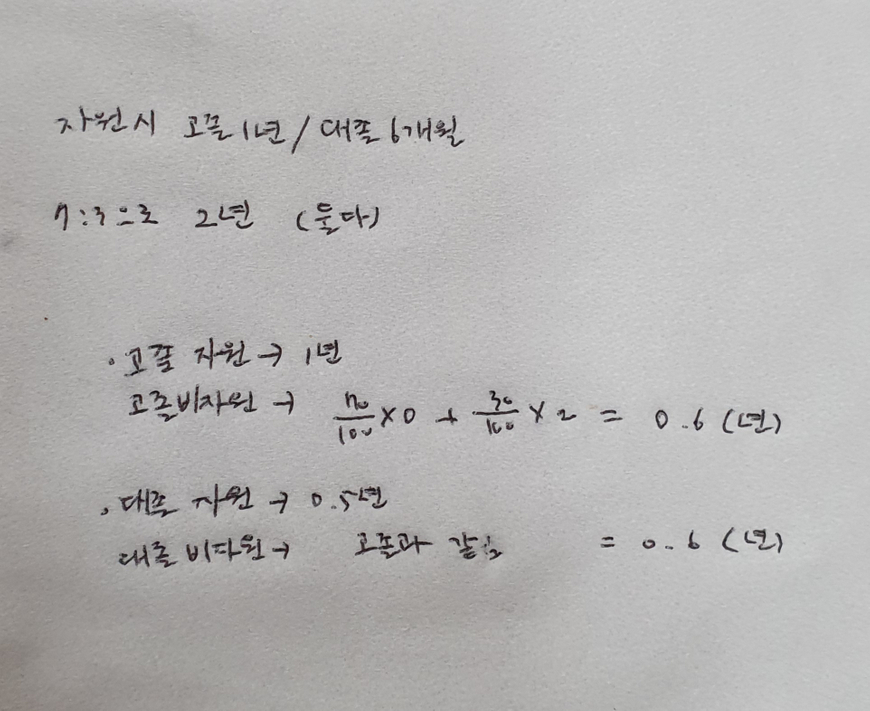 자원시 고졸 1년 / 대졸 6개월
7:3으로 2년 (둘다)
· 고졸 자원 → 1년
고졸비자원 → 70/100 × 0 + 30/100 × 2 = 0.6 (년)
· 대졸 자원 → 0.5년
대졸 비자원 → 고졸과 같음 = 0.6 (년)